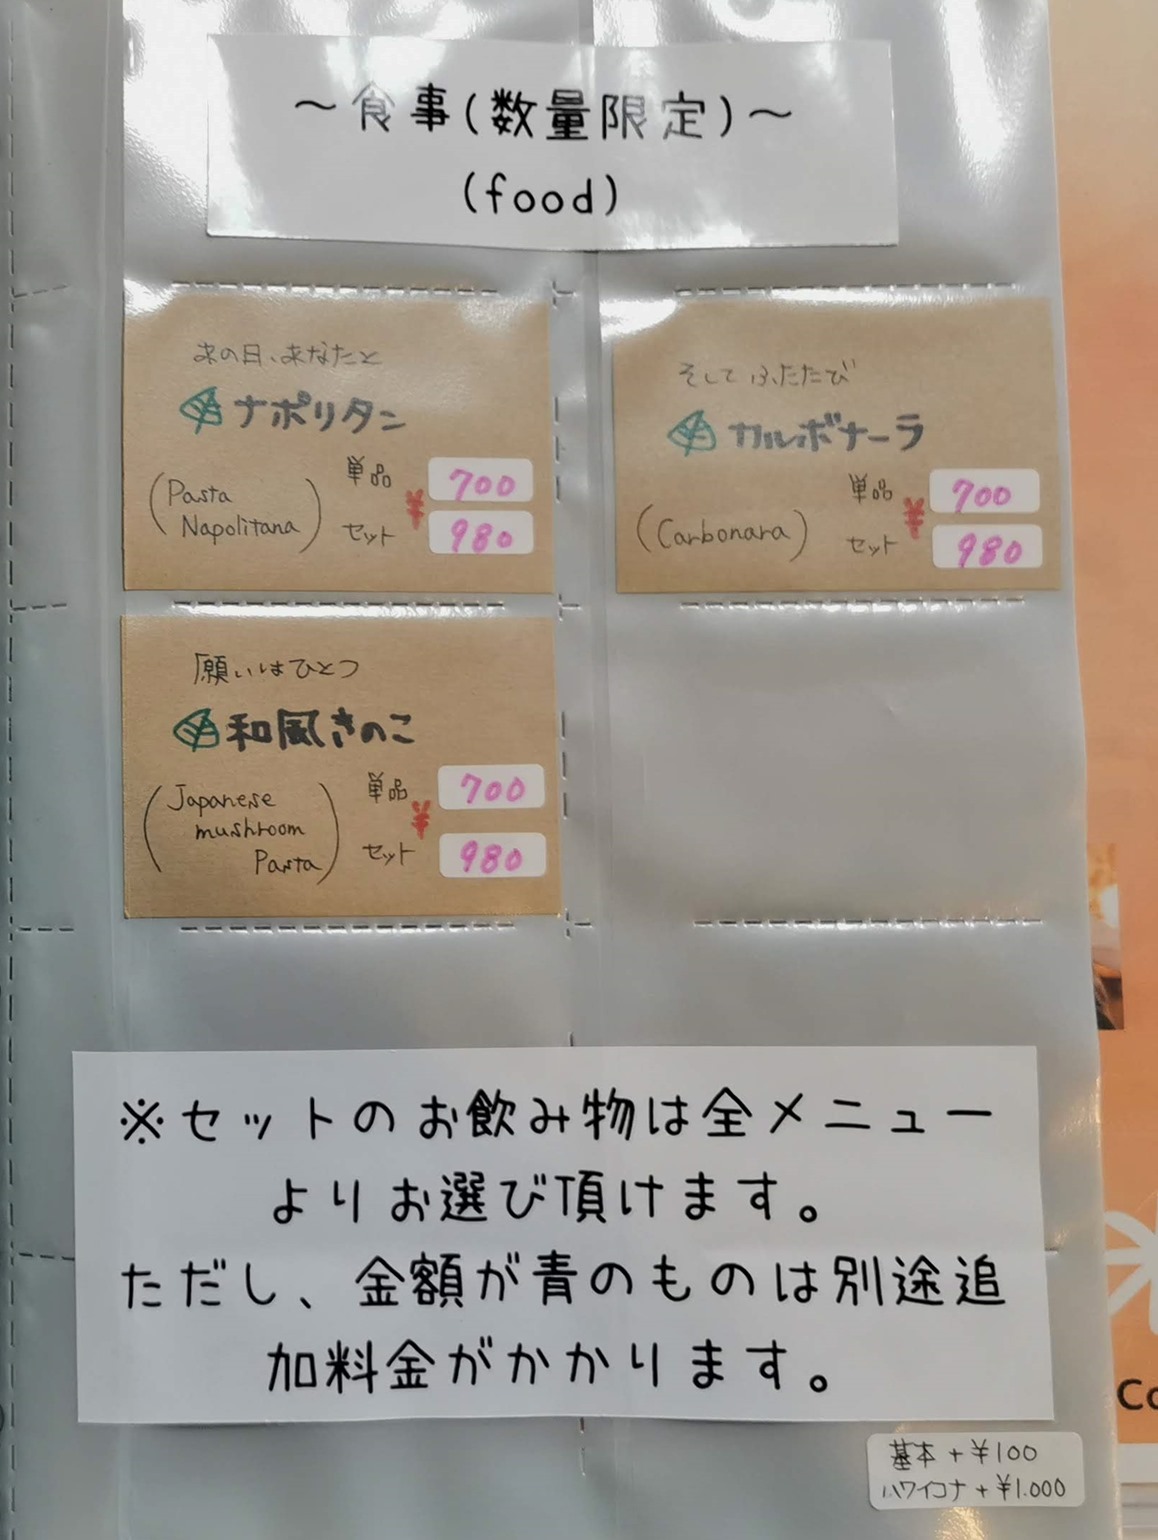 ～食事(数量限定)～
(food)
あの日、あなたと
ナポリタン
(Pasta
Napolitana)
単品 ¥ 700
セット 980
そしてふたたび
カルボナーラ
(Carbonara)
単品 ¥ 700
セット 980
願いはひとつ
和風きのこ
(Japanese
mushroom
Pasta)
単品 ¥ 700
セット 980
※セットのお飲み物は全メニュー
よりお選び頂けます。
ただし、金額が青のものは別途追
加料金がかかります。
基本+¥100
ハワイコナ+¥1.000
Co